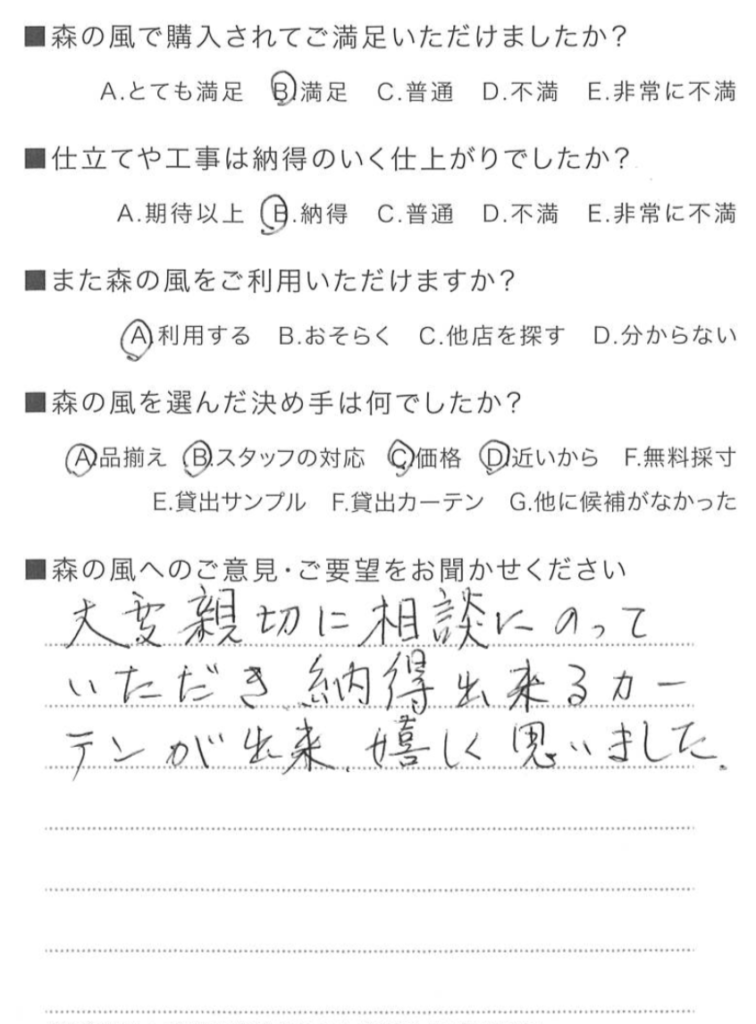 ■森の風で購入されてご満足いただけましたか？
A.とても満足　B.満足　C.普通　D.不満　E.非常に不満
■仕立てや工事は納得のいく仕上がりでしたか？
A.期待以上　B.納得　C.普通　D.不満　E.非常に不満
■また森の風をご利用いただけますか？
A.利用する　B.おそらく　C.他店を探す　D.分からない
■森の風を選んだ決め手は何でしたか？
A.品揃え　B.スタッフの対応　C.価格　D.近いから　F.無料採寸
E.貸出サンプル　F.貸出カーテン　G.他に候補がなかった
■森の風へのご意見・ご要望をお聞かせください
大変親切に相談にのって
いただき、納得出来るカー
テンが出来、嬉しく思いました。